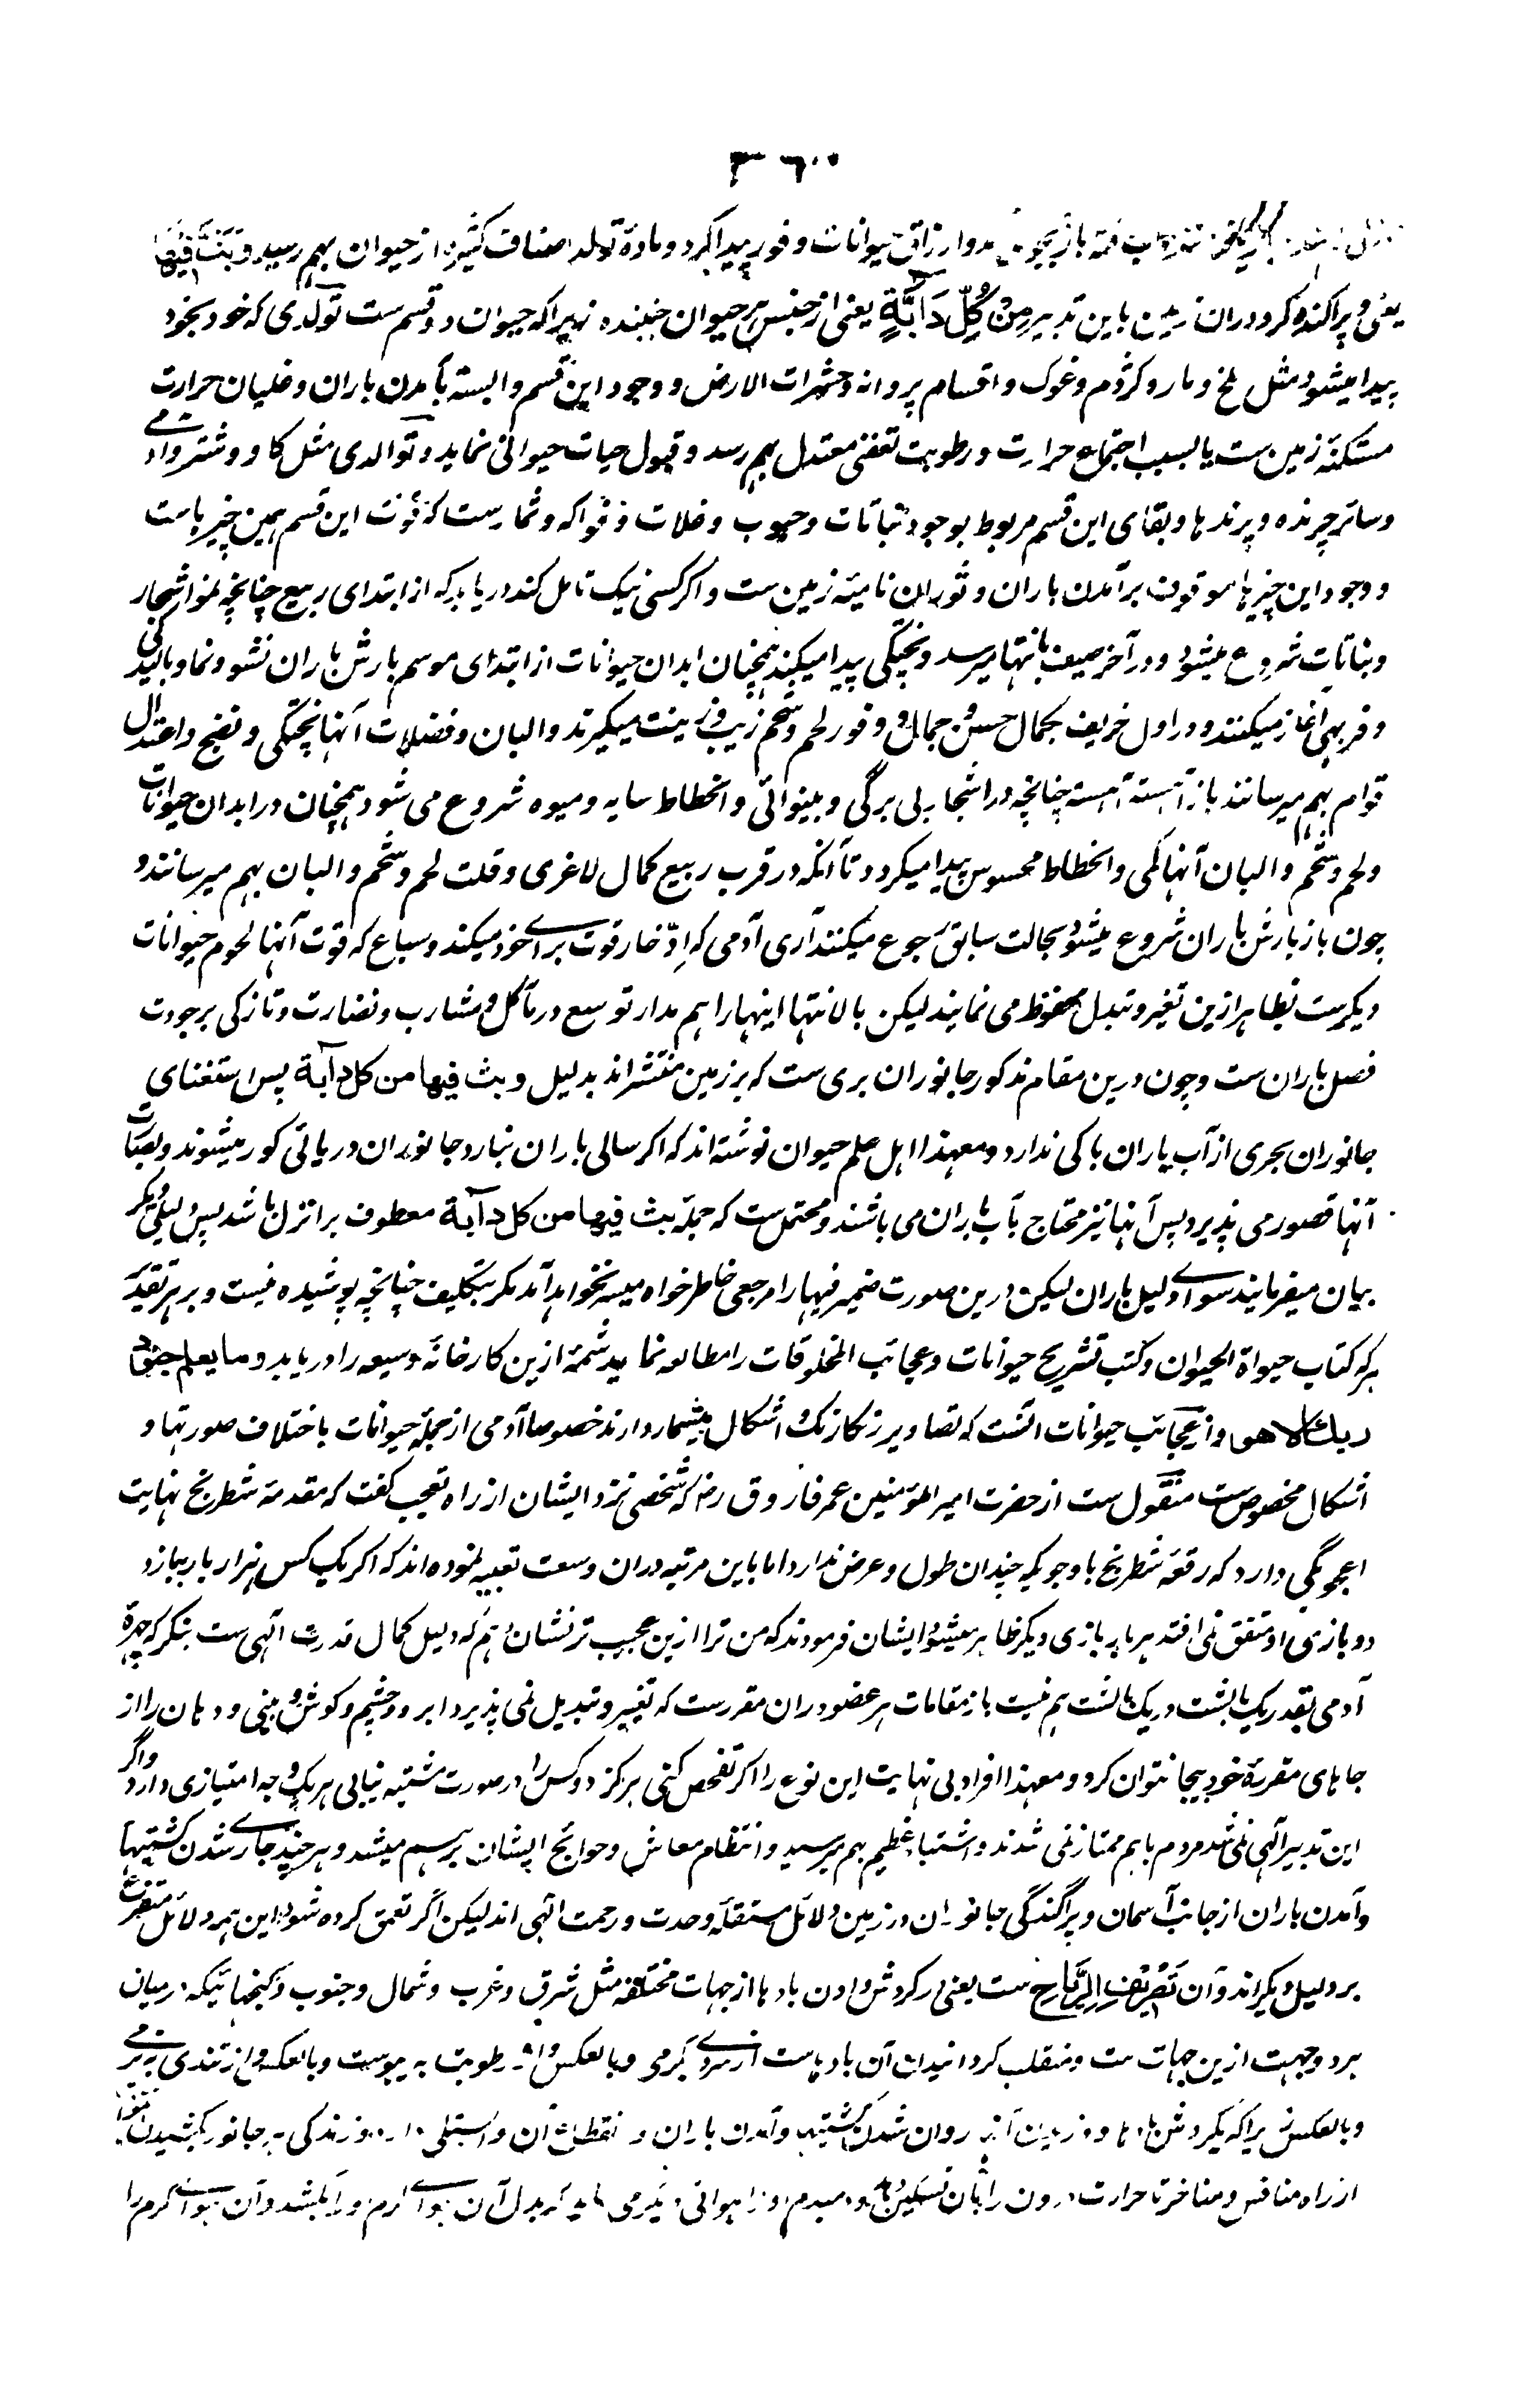 ۳۶۰
مدو ارزاق حیوانات وفور پیدا کرد و مادهٔ تولد اصناف کثیره از حیوان بهم رسید وَبَثَّ فِیهَا
یعنی و پراکنده کرد دران زمین باین تدبیر مِنْ کُلِّ دَآبَّةٍ یعنی از جنس هر حیوان جنبنده زیرا که حیوان دو قسم ست تولدی که خود بخود
پیدا میشود مثل ملخ و مار و کژدم و غوک و اقسام پروانه و حشرات الارض و وجود این قسم وابسته بآمدن باران و غلیان حرارت
مستکنهٔ زمین ست یا بسبب اجتماع حرارت و رطوبت تعفنی معتدل بهم رسد و قبول حیات حیوانی نماید و توالدی مثل کاو و شتر و آدمی
و سائر چرنده و پرندها و بقای این قسم مربوط بوجود نباتات و حبوب و غلات و فواکه و ثمارست که قوت این قسم همین چیزهاست
و وجود این چیزها موقوف بر آمدن باران و ثوران نامیهٔ زمین ست و اگر کسی نیک تامل کند دریابد که از ابتدای ربیع چنانچه نمو اشجار
و نباتات شروع میشود و در آخر صیف بانتها میرسد و پختگی پیدا میکند همچنان ابدان حیوانات از ابتدای موسم بارش باران نشو و نما و بالیدگی
و فربهی آغاز میکنند و در اول خریف بکمال حسن و جمال و وفور لحم و شحم زیب و زینت میگیرند و البان و فضلات آنها پختگی و نضج و اعتدال
قوام بهم میرسانند باز آهسته آهسته چنانچه در اشجار بی برگی و بینوائی و انحطاط سایه و میوه شروع می شود همچنان در ابدان حیوانات
و لحم و شحم و البان آنها کمی و انحطاط محسوس پیدا میکرد و تا آنکه در قرب ربیع کمال لاغری و قلت لحم و شحم و البان بهم میرسانند و
چون باز بارش باران شروع میشود بحالت سابق رجوع میکنند آری آدمی که ادّخار قوت برای خود میکند و سباع که قوت آنها لحوم حیوانات
دیگرست بظاهر ازین تغیر و تبدل محفوظ می نمایند لیکن بالانتها اینها را هم مدار توسع در مآکل و مشارب و نضارت و تازگی بر جودت
فصل باران ست و چون درین مقام مذکور جانوران بری ست که بر زمین منتشر اند بدلیل و بث فیها من کل دآبة پس استغنای
جانوران بحری از آب باران باکی ندارد و معهذا اهل علم حیوان نوشته اند که اگر سالی باران نبارد جانوران دریائی کور میشوند و بصارت
آنها قصور می پذیرد پس آنها نیز محتاج بآب باران می باشند و محتمل ست که جملهٔ بث فیها من کل دآبة معطوف بر انزل باشد پس دلیلی دیگر
بیان میفرمایند سوای دلیل باران لیکن درین صورت ضمیر فیها را مرجعی خاطر خواه میسر نخواهد آمد مگر بتکلیف چنانچه پوشیده نیست و بر هر تقدیر
هر که کتاب حیواة الحیوان و کتب تشریح حیوانات و عجائب المخلوقات را مطالعه نماید شمهٔ ازین کارخانهٔ وسیعه را دریابد و ما یعلم جنود
ربک الا هو و از عجائب حیوانات آنست که تصاویر رنگارنگ و اشکال بیشمار دارند خصوصا آدمی از جملهٔ حیوانات باختلاف صورتها و
اشکال مخصوص ست منقول ست از حضرت امیر المؤمنین عمر فاروق رضه که شخصی نزد ایشان از راه تعجب گفت که مقدمهٔ شطرنج نهایت
اعجوبگی دارد که رقعهٔ شطرنج با وجودیکه چندان طول و عرض ندارد اما باین مرتبه دران وسعت تعبیه نموده اند که اگر یک کس هزار بار ببازد
دو بازی او متفق نمی افتد هر بار بازی دیگر ظاهر میشود ایشان فرمودند که من ترا ازین عجیب تر نشان دهم که دلیل کمال قدرت الٰهی ست بنگر که چهرهٔ
آدمی بقدر یک بالشت در یک بالشت هم نیست باز مقامات هر عضو دران مقررست که تغییر و تبدیل نمی پذیرد ابرو و چشم و کوش و بینی و دهان را از
جاهای مقررهٔ خود بیجا نتوان کرد و معهذا افراد بی نهایت این نوع را اگر تفحص کنی هرگز دو کس را در صورت مشتبه نیابی هر یک وجه امتیازی دارد و اگر
این تدبیر الٰهی نمی شد مردم باهم ممتاز نمی شدند و اشتباه عظیم بهم میرسید و انتظام معاش و حوائج ایشان برهم میشد و هر چند جاری شدن کشتیها
و آمدن باران از جانب آسمان و پراگندگی جانوران در زمین دلائل مستقلهٔ وحدت و رحمت الٰهی اند لیکن اگر تعمق کرده شود این همه دلائل متفرع
بر دلیل دیگر اند و آن تَصْرِیْفِ الرِّیَاحِ ست یعنی در گردش دادن بادها از جهات مختلفه مثل شرق و غرب و شمال و جنوب و کنجهائیکه درمیان
هر دو جهت ازین جهات ست و منقلب گردانیدن آن بادهاست از سردی بگرمی و بالعکس و از رطوبت به یبوست و بالعکس و از تندی به نرمی
و بالعکس زیرا که بگردش بادها روان شدن کشتیها و آمدن باران و انقطاع آن وابستگی دارد و زندگی هر جانور بکشیدن
از راه منافس و مناخر تا حرارت درون را بآن تسکین دهد و میدم هوائی گرم را